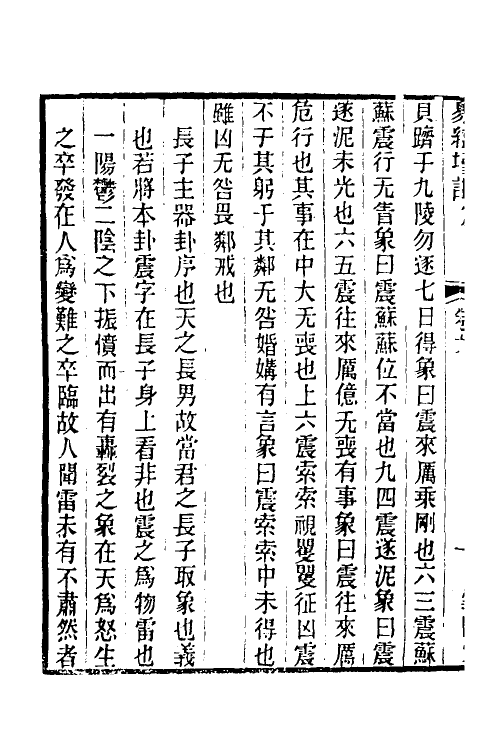 貝躋于九陵勿逐七日得象曰震來厲乘剛也六三震蘇
蘇震行无眚象曰震蘇蘇位不當也九四震遂泥象曰震
遂泥未光也六五震往來厲億无喪有事象曰震往來厲
危行也其事在中大无喪也上六震索索視矍矍征凶震
不于其躬于其鄰无咎婚媾有言象曰震索索中未得也
雖凶无咎畏鄰戒也
長子主器卦序也天之長男故當君之長子取象也義
也若將本卦震字在長子身上看非也震之爲物雷也
一陽鬱二陰之下振憤而出有轟裂之象在天爲怒生
之卒發在人爲變難之卒臨故人聞雷未有不肅然者